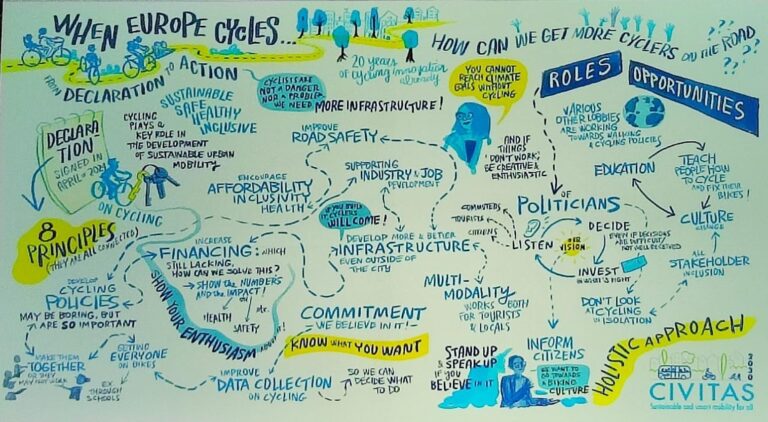 WHEN EUROPE CYCLES...
FROM DECLARATION TO ACTION
20 years
of cycling innovation
already
HOW CAN WE GET MORE CYCLERS ON THE ROAD
? ? ? ? ?
CYCLISTS ARE
NOT A DANGER
NOR A PROBLEM
WE NEED
MORE INFRASTRUCTURE!
YOU CANNOT
REACH CLIMATE
GOALS WITHOUT
CYCLING
AND IF
THINGS
'DON'T WORK',
BE CREATIVE &
ENTHUSIASTIC
SUSTAINABLE
SAFE
HEALTHY
INCLUSIVE
DECLARA
TION
SIGNED IN
APRIL
ON CYCLING
CYCLING
PLAYS A
KEY ROLE IN
THE DEVELOPMENT
OF SUSTAINABLE URBAN
MOBILITY
8
PRINCIPLES
(THEY ARE ALL CONNECTED)
DEVELOP
CYCLING
POLICIES
MAY BE BORING, BUT
ARE SO IMPORTANT
MAKE THEM
TOGETHER
OR THEY
MAY NOT WORK
GETTING
EVERYONE
ON BIKES
EX
THROUGH
SCHOOLS
IMPROVE
DATA COLLECTION
ON CYCLING
SO WE CAN
DECIDE WHAT
TO DO
INCREASE
FINANCING: WHICH
STILL LACKING.
HOW CAN WE SOLVE THIS?
SHOW THE NUMBERS
AND THE IMPACT!
ON
HEALTH
SAFETY
etc.
SHOW YOUR ENTHUSIASM ABOUT IT!
ENCOURAGE
AFFORDABILITY
INCLUSIVITY
HEALTH
IMPROVE
ROAD SAFETY
SUPPORTING
INDUSTRY & JOB
DEVELOPMENT
IF YOU BUILD
IT CYCLERS
WILL COME!
DEVELOP MORE & BETTER
INFRASTRUCTURE
EVEN OUTSIDE OF
THE CITY
MULTI-
MODALITY
WORKS BOTH
FOR TOURISTS
& LOCALS
COMMITMENT
WE BELIEVE IN IT!
KNOW WHAT YOU WANT
STAND UP
& SPEAK UP
IF YOU
BELIEVE IN IT
INFORM
CITIZENS
WE WANT TO
GO TOWARDS
A BIKING
CULTURE
ROLES
OF
POLITICIANS
TOURISTS
CITIZENS
LISTEN
OUR
VISION
DECIDE
EVEN IF DECISIONS
ARE DIFFICULT/
NOT WELL RECEIVED
INVEST
IN WHAT'S RIGHT
DON'T LOOK
AT CYCLING
IN ISOLATION
OPPORTUNITIES
VARIOUS
OTHER LOBBIES
ARE WORKING
TOWARDS WALKING
& CYCLING POLICIES
EDUCATION
TEACH
PEOPLE HOW
TO CYCLE
AND FIX THEIR
BIKES!
CULTURE
CHANGE
ALL
STAKEHOLDER
INCLUSION
HOLISTIC APPROACH
2030
CIVITAS
Sustainable and smart mobility for all